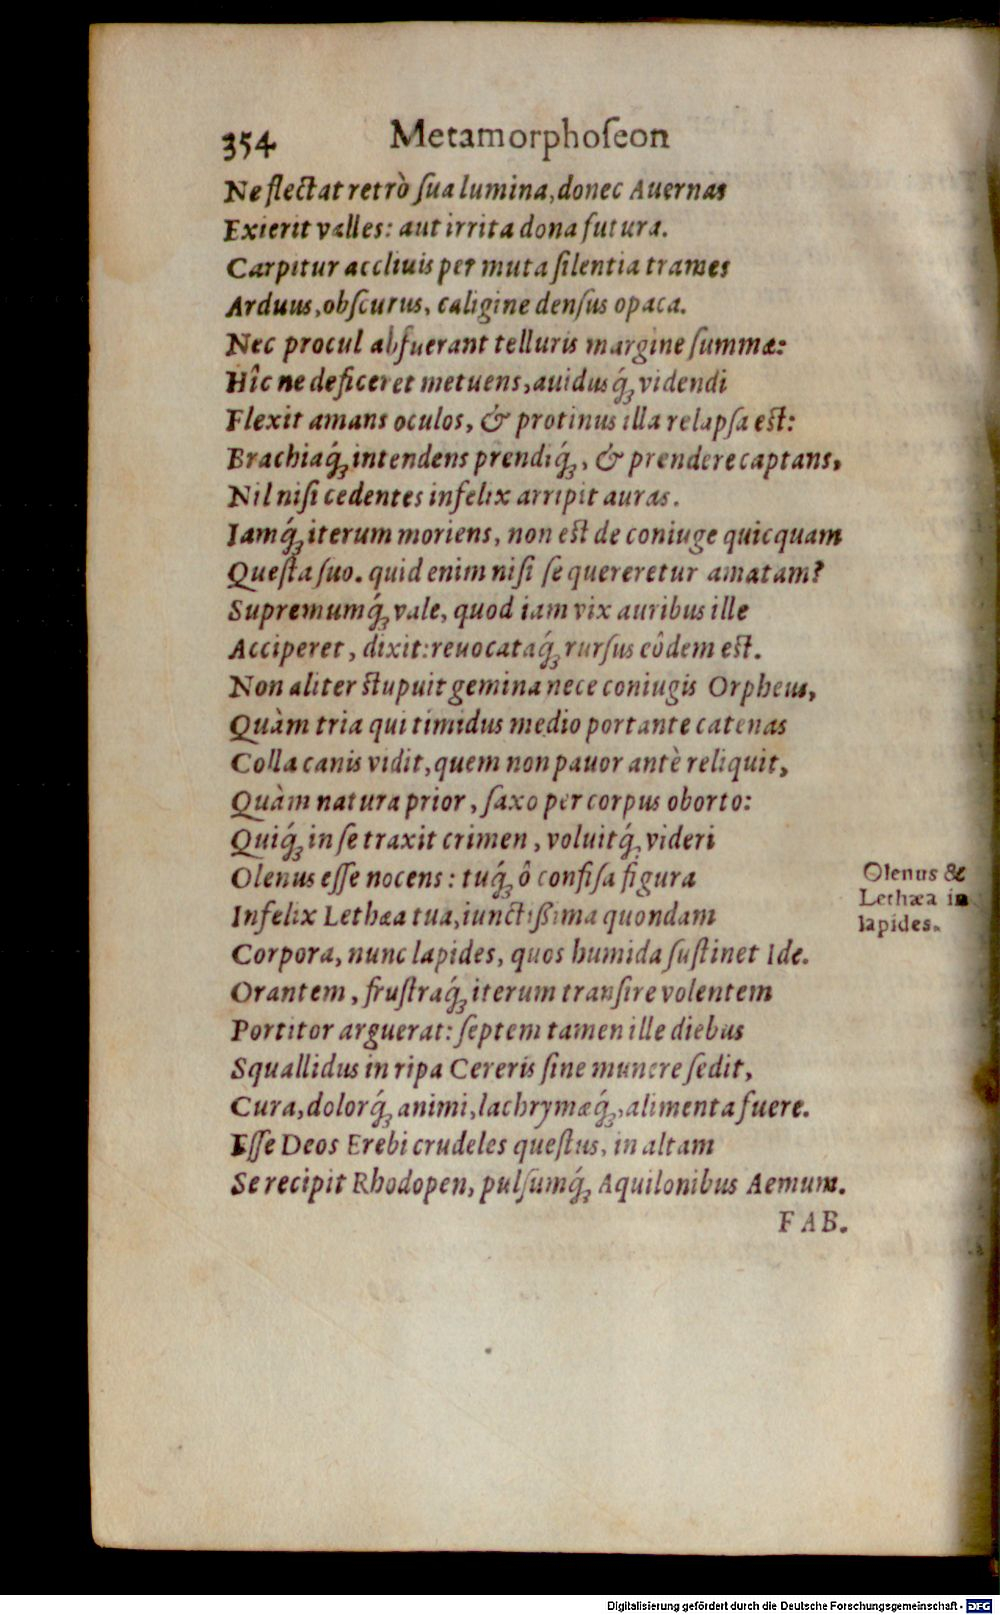 354 Metamorphoſeon
Ne flectat retrò ſua lumina, donec Auernas
Exierit valles: aut irrita dona futura.
Carpitur accliuis per muta ſilentia trames
Arduus, obſcurus, caligine denſus opaca.
Nec procul abfuerant telluris margine ſummæ:
Hîc ne deficeret metuens, auidusq́ꝫ videndi
Flexit amans oculos, & protinus illa relapſa est:
Brachiaq́ꝫ intendens prendiq́ꝫ, & prendere captans,
Nil niſi cedentes infelix arripit auras.
Iamq́ꝫ iterum moriens, non est de coniuge quicquam
Queſta ſuo. quid enim niſi ſe quereretur amatam?
Supremumq́ꝫ vale, quod iam vix auribus ille
Acciperet, dixit: reuocataq́ꝫ rurſus eôdem est.
Non aliter stupuit gemina nece coniugis Orpheus,
Quàm tria qui timidus medio portante catenas
Colla canis vidit, quem non pauor antè reliquit,
Quàm natura prior, ſaxo per corpus oborto:
Quiq́ꝫ in ſe traxit crimen, voluitq́ꝫ videri
Olenus eſſe nocens: tuq́ꝫ ô confiſa figura
Infelix Lethæa tua, iunctißima quondam
Corpora, nunc lapides, quos humida ſuſtinet Ide.
Orantem, fruſtraq́ꝫ iterum tranſire volentem
Portitor arguerat: ſeptem tamen ille diebus
Squallidus in ripa Cereris ſine munere ſedit,
Cura, dolorq́ꝫ animi, lachrymæq́ꝫ, alimenta fuere.
Eſſe Deos Erebi crudeles queſtus, in altam
Se recipit Rhodopen, pulſumq́ꝫ Aquilonibus Aemum.
FAB.
Olenus &
Lethæa in
lapides.
Digitalisierung gefördert durch die Deutsche Forschungsgemeinschaft - DFG